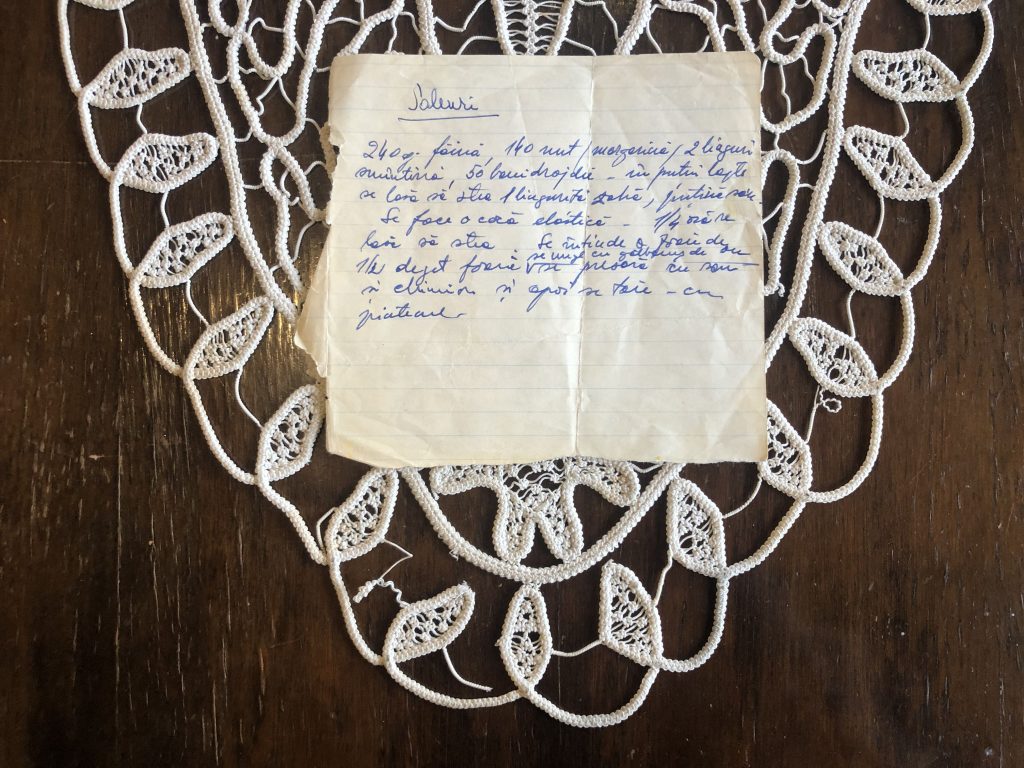 Saleuri
240 g. făină, 140 unt, margarină, 2 linguri
smântînă, 50 bani drojdie - în puțin lapte
se lasă să stea 1 linguriță zahă, puțină sare.
Se face o cocă elastică - 1/4 oră se
lasă să stea. Se întinde o foaie de
se unge cu gălbenuș de ou
1/2 deget foaia se presară cu
și chimion și apoi se taie - cu